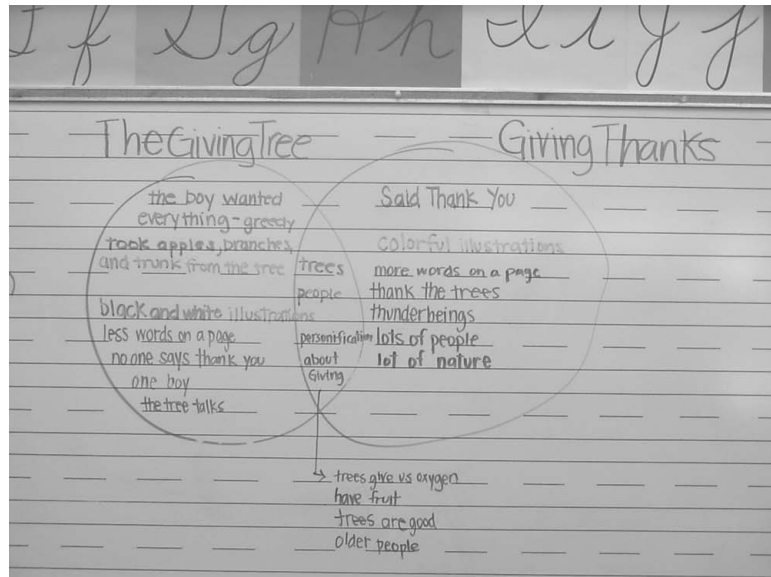 I f G g H h I i J j
The Giving Tree
Giving Thanks
the boy wanted
everything - greedy
took apples, branches,
and trunk from the tree
black and white illustrations
less words on a page
no one says thank you
one boy
the tree talks
trees
people
personification
about
Giving
Said Thank You
colorful illustrations
more words on a page
thank the trees
thunderbeings
lots of people
lot of nature
trees give us oxygen
have fruit
trees are good
older people